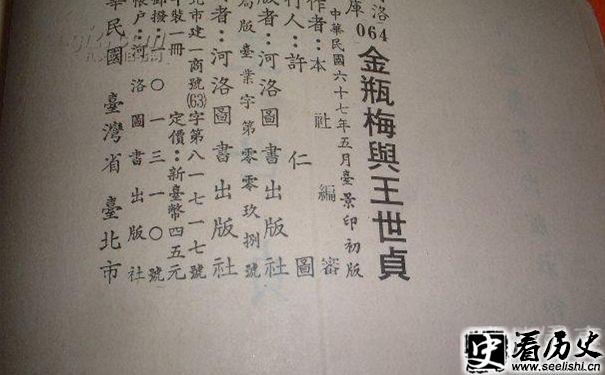 洛
庫
064
金瓶梅與王世貞
中華民國六十七年五月臺景印初版
作者：本社編審
行人：許仁圖
版者：河洛圖書出版社
局版臺業字第零零玖捌號
者：河洛圖書出版社
北市建一商號(63)字第八一七一七號
裝一冊 定價：新臺幣四五元
撥：〇一三一〇號
帳戶：河洛圖書出版社
華民國 臺灣省 臺北市
史 看历史
www.seelishi.cn